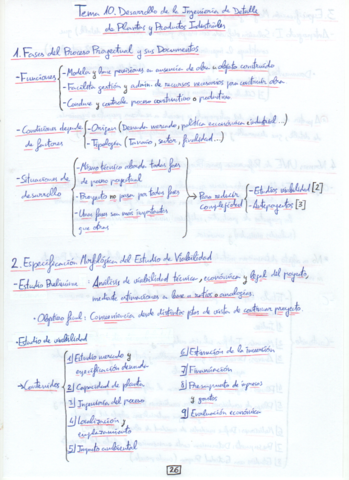 Tema 10. Desarrollo de la Ingeniería de Detalle
de Plantas y Productos Industriales
1. Fases del Proceso Proyectual y sus Documentos
- Funciones
- Modela y hace previsiones en ausencia de otra u objeto construido
- Facilita gestión y admin de recursos necesarios para construir obra
- Conduce y controla proceso constructivo o productivo
- Condiciones depende de factores
- Origen (Demanda mercado, política económica industrial...)
- Tipología (Tamaño, sector, finalidad...)
- Situaciones de desarrollo
- Mismo técnico aborda todas fases
de proceso proyectual
- Proyecto no pasa por todas fases
- Unas fases son más importantes
que otras
Para reducir
complejidad
- Estudios viabilidad [2]
- Anteproyectos [3]
2. Especificación Morfológica del Estudio de Viabilidad
- Estudio Preliminar
- Análisis de viabilidad técnica, económica y legal del proyecto,
mediante estimaciones en base a ratios o analogías.
- Objetivo final: Conveniencia desde distintos ptos de vista de continuar proyecto
- Estudio de viabilidad
→ Contenidos
1) Estudio mercado y
especificación demanda
2) Capacidad de planta
3) Ingeniería del proceso
4) Localización y
emplazamiento
5) Impacto ambiental
6) Estimación de la inversión
7) Financiación
8) Presupuesto de ingresos
y gastos
9) Evaluación económica
26